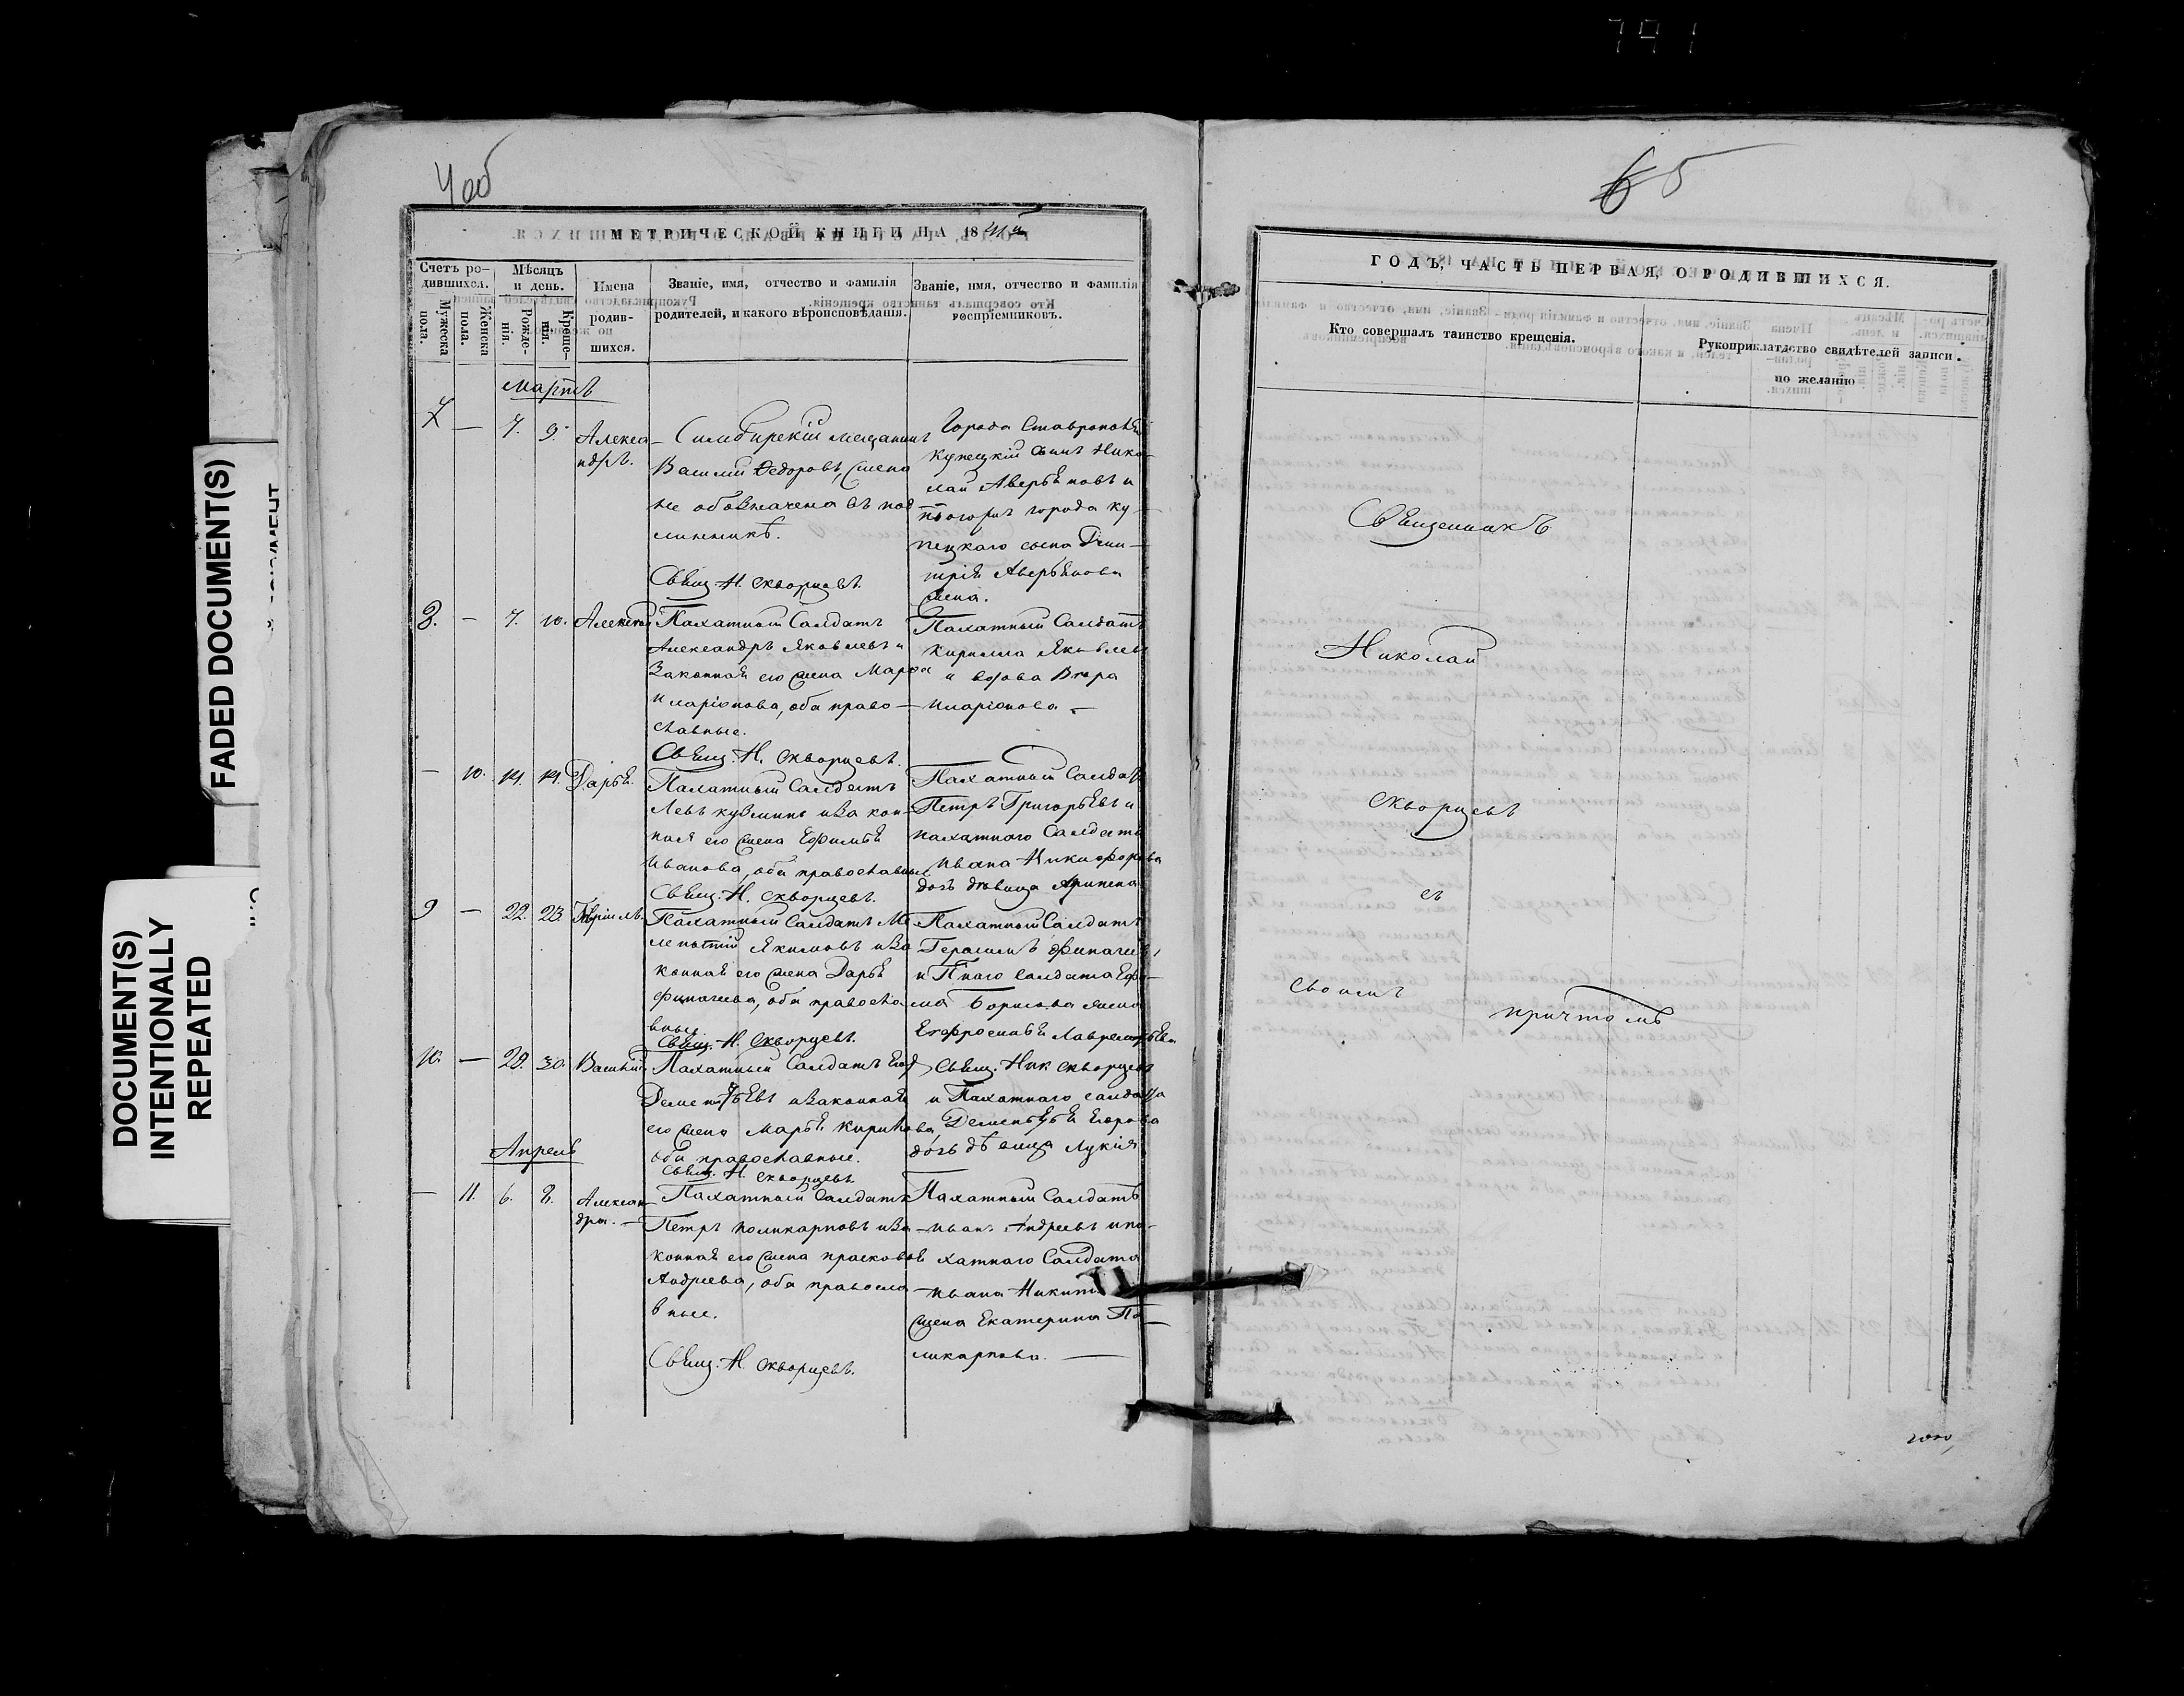 791
4об
МЕТРИЧЕСКОЙ КНИГИ НА 18
Счетъ ро-
дившихся.
Мужеска
пола.
Женска
пола.
Мѣсяцъ
и день.
Рожде-
нія.
Креще-
нія.
Имена
родив-
шихся.
Званіе, имя, отчество и фамилія
родителей, и какого вѣроисповѣданія.
Званіе, имя, отчество и фамилія
воспріемниковъ.
Мартъ
7 — 7. 9. Алекса-
ндръ.
Симбирскій мещанинъ
Василій Ѳедоровъ, жена
не обозначена въ под
линникѣ.
Свящ. Н. Скворцевъ.
Города Ставрополя
купецкій сынъ Нико-
лай Аверьяновъ и
города ку-
пецкаго сына Дми-
трія Аверьянова
жена.
8. — 7. 10. Алексѣй
Пахатный Салдатъ
Александръ Яковлевъ и
Законная его жена Марѳа
Иларіонова, оба право-
славные.
Свящ. Н. Скворцевъ.
Пахатный Салдатъ
Кирилла Яковлевъ
и вдова
Иларіонова. —
— 10. 14. 14. Дарья.
Пахатный Салдатъ
Левъ Кузминъ и Закон-
ная его жена Ефимья
Иванова, оба православные
Свящ. Н. Скворцевъ.
Пахатный Салдатъ
Петръ Григорьевъ и
пахатнаго Салдата
Ивана Никифорова
дочь дѣвица
9 — 22. 23 Гаврiилъ.
Пахатный Салдатъ Ме
лентій Якимовъ и За
конная его жена Дарья
оба правосла
вные.
Свящ. Н. Скворцевъ.
Пахатный Салдатъ
Герасимъ
и П наго Салдата Ефи-
ма Борисова жена
Евфросинья Лаврентьева
10. — 28. 30. Василій
Пахатный Салдатъ Егор
Дементьевъ и Законная
его жена Марья Кирилова
оба православные.
Свящ. Н. Скворцевъ.
Свящ. Ник Скворцевъ
и Пахатнаго салдата
Дементья Егорова
дочь дѣвица Лукія
Апрель
— 11. 6. 8. Алексан-
дра. —
Пахатный Салдатъ
Петръ Поликарповъ и За
конная его жена Прасковья
Андреева, оба правосла
вные.
Свящ. Н. Скворцевъ.
Пахатный Салдатъ
Иванъ Андреевъ и па-
хатнаго Салдата
Ивана
жена Екатерина По-
ликарпова. —
5
ГОДЪ, ЧАСТЬ ПЕРВАЯ, О РОДИВШИХСЯ.
Кто совершалъ таинство крещенія.
Рукоприкладство свидѣтелей записи
по желанію
Священникъ
Николай
Скворцевъ
съ
своимъ
причтомъ
FADED DOCUMENT(S)
DOCUMENT(S)
INTENTIONALLY
REPEATED